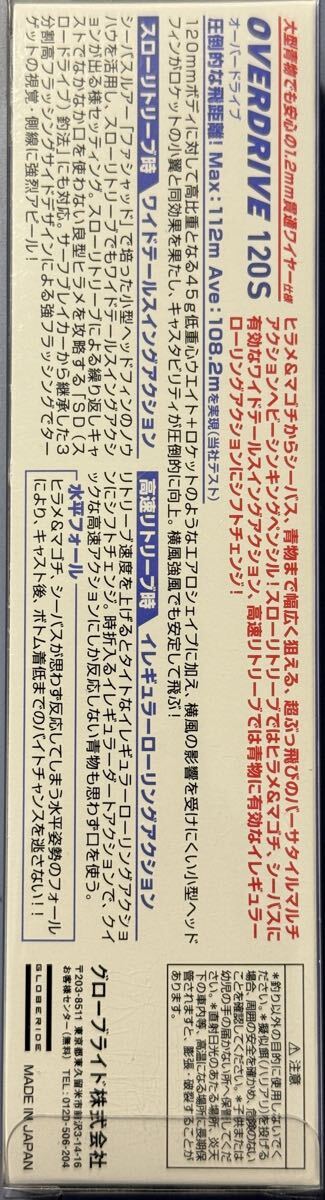 大型青物でも安心の1.2mm貫通ワイヤー仕様
OVERDRIVE 120S
オーバードライブ
ヒラメ&マゴチからシーバス、青物まで幅広く狙える、超ぶっ飛びのバーサタイルマルチ
アクションヘビーシンキングペンシル！スローリトリーブではヒラメ&マゴチ、シーバスに
有効なワイドテールスイングアクション、高速リトリーブでは青物に有効なイレギュラー
ローリングアクションにシフトチェンジ！
圧倒的な飛距離！Max：112m Ave：108.2mを実現(当社テスト)
120mmボディに対して高比重となる45g低重心ウエイト+ロケットのようなエアロシェイプに加え、横風の影響を受けにくい小型ヘッド
フィンがロケットの小翼と同効果を果たし、キャスタビリティが圧倒的に向上。横風強風でも安定して飛ぶ！
スローリトリーブ時 ワイドテールスイングアクション
シーバスルアー「ファシャッド」で培った小型ヘッドフィンのノウ
ハウを活用し、スローリトリーブでもワイドテールスイングアクシ
ョンが出る様セッティング。スローリトリーブによる繰り返しキャ
ストでなかなか口を使わない良型ヒラメを攻略する「SD（ス
ロードライブ）釣法」にも対応。サーフブレイカーから継承した3
分割高フラッシングサイドデザインによる強フラッシングでター
ゲットの視覚・側線に強烈アピール！
高速リトリーブ時 イレギュラーローリングアクション
リトリーブ速度を上げるとタイトなイレギュラーローリングアクショ
ンにシフトチェンジ。時折入るイレギュラーダートアクションで、クイ
ックな高速アクションにしか反応しない青物も思わず口を使う。
水平フォール
ヒラメ&マゴチ、シーバスが思わず反応してしまう水平姿勢のフォール
により、キャスト後、ボトム着底までのバイトチャンスを逃さない！！
⚠ 注意
*釣り以外の目的に使用しないでく
ださい。*擬似餌(ハリアリ)を投げる
場合、周囲の安全を確かめ、危険のない
ことを確認してください。*子供または
幼児の手の届かない所へ保管してくだ
さい。*直射日光のあたる場所、炎天
下の車内等、高温になる場所に長期保
管されますと、膨張、破裂することが
グローブライド株式会社
〒203-8511 東京都東久留米市前沢3-14-16
お客様センター(無料) TEL：0120-506-204
GLOBERIDE
MADE IN JAPAN